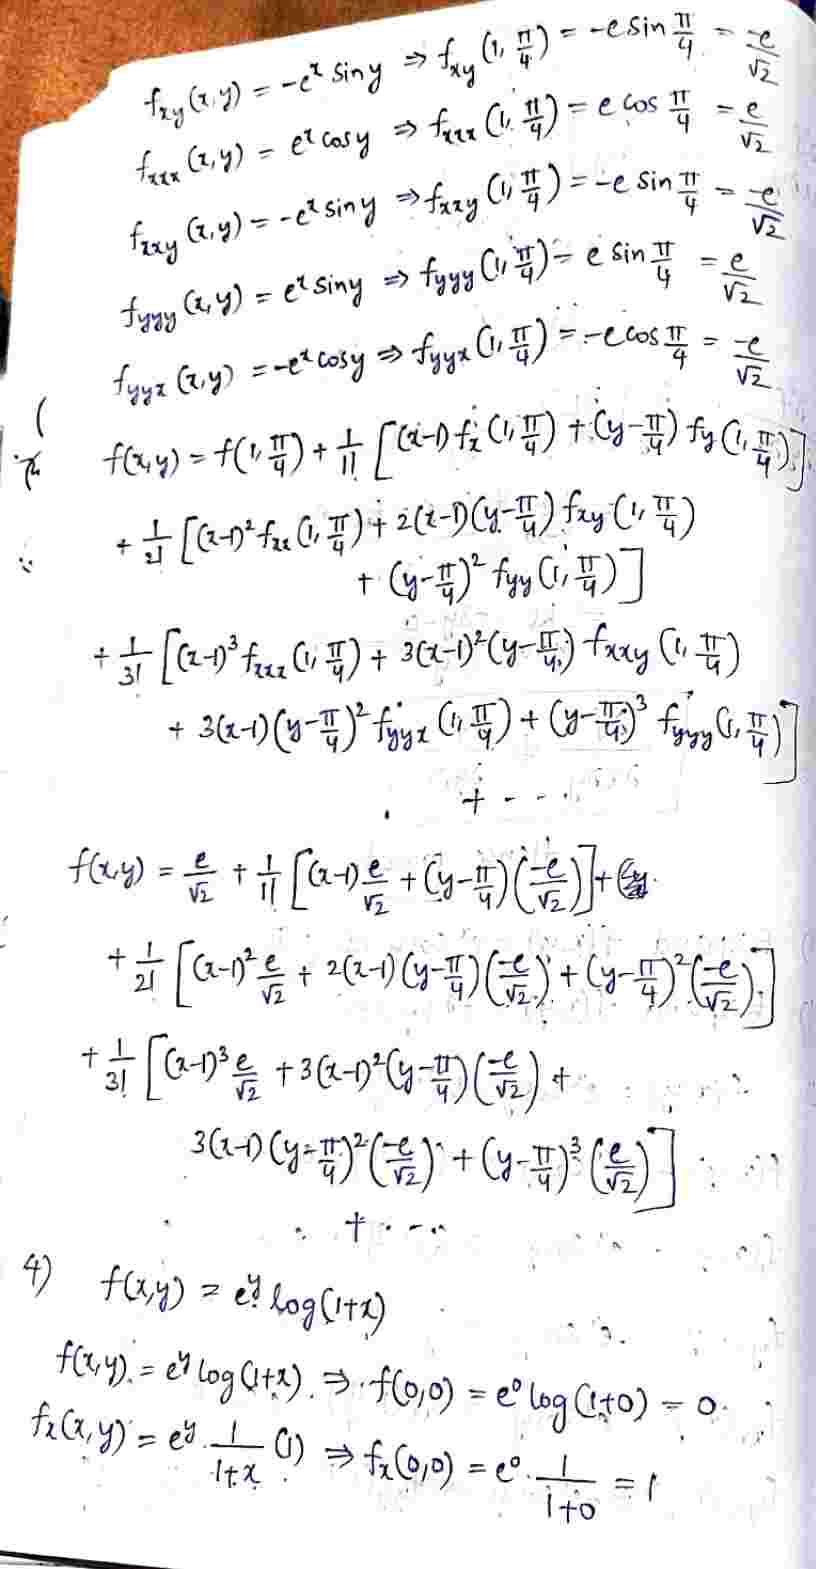 f_xy (x,y) = -e^x sin y ⇒ f_xy (1, π/4) = -e sin π/4 = -e/√2
f_xxx (x,y) = e^x cos y ⇒ f_xxx (1, π/4) = e cos π/4 = e/√2
f_xxy (x,y) = -e^x sin y ⇒ f_xxy (1, π/4) = -e sin π/4 = -e/√2
f_yyy (x,y) = e^x sin y ⇒ f_yyy (1, π/4) = e sin π/4 = e/√2
f_yyx (x,y) = -e^x cos y ⇒ f_yyx (1, π/4) = -e cos π/4 = -e/√2
f(x,y) = f(1, π/4) + 1/1! [(x-1) f_x (1, π/4) + (y-π/4) f_y (1, π/4)]
+ 1/2! [(x-1)² f_xx (1, π/4) + 2(x-1)(y-π/4) f_xy (1, π/4)
+ (y-π/4)² f_yy (1, π/4)]
+ 1/3! [(x-1)³ f_xxx (1, π/4) + 3(x-1)² (y-π/4) f_xxy (1, π/4)
+ 3(x-1)(y-π/4)² f_yyx (1, π/4) + (y-π/4)³ f_yyy (1, π/4)]
+ - - - .
f(x,y) = e/√2 + 1/1! [(x-1) e/√2 + (y-π/4)(-e/√2)] +
+ 1/2! [(x-1)² e/√2 + 2(x-1)(y-π/4)(-e/√2) + (y-π/4)² (-e/√2)]
+ 1/3! [(x-1)³ e/√2 + 3(x-1)² (y-π/4)(-e/√2) +
3(x-1)(y-π/4)² (-e/√2) + (y-π/4)³ (e/√2)]
+ . - ..
4) f(x,y) = e^y log(1+x)
f(x,y) = e^y log(1+x) ⇒ f(0,0) = e^0 log(1+0) = 0
f_x (x,y) = e^y . 1/(1+x) (1) ⇒ f_x (0,0) = e^0 . 1/(1+0) = 1